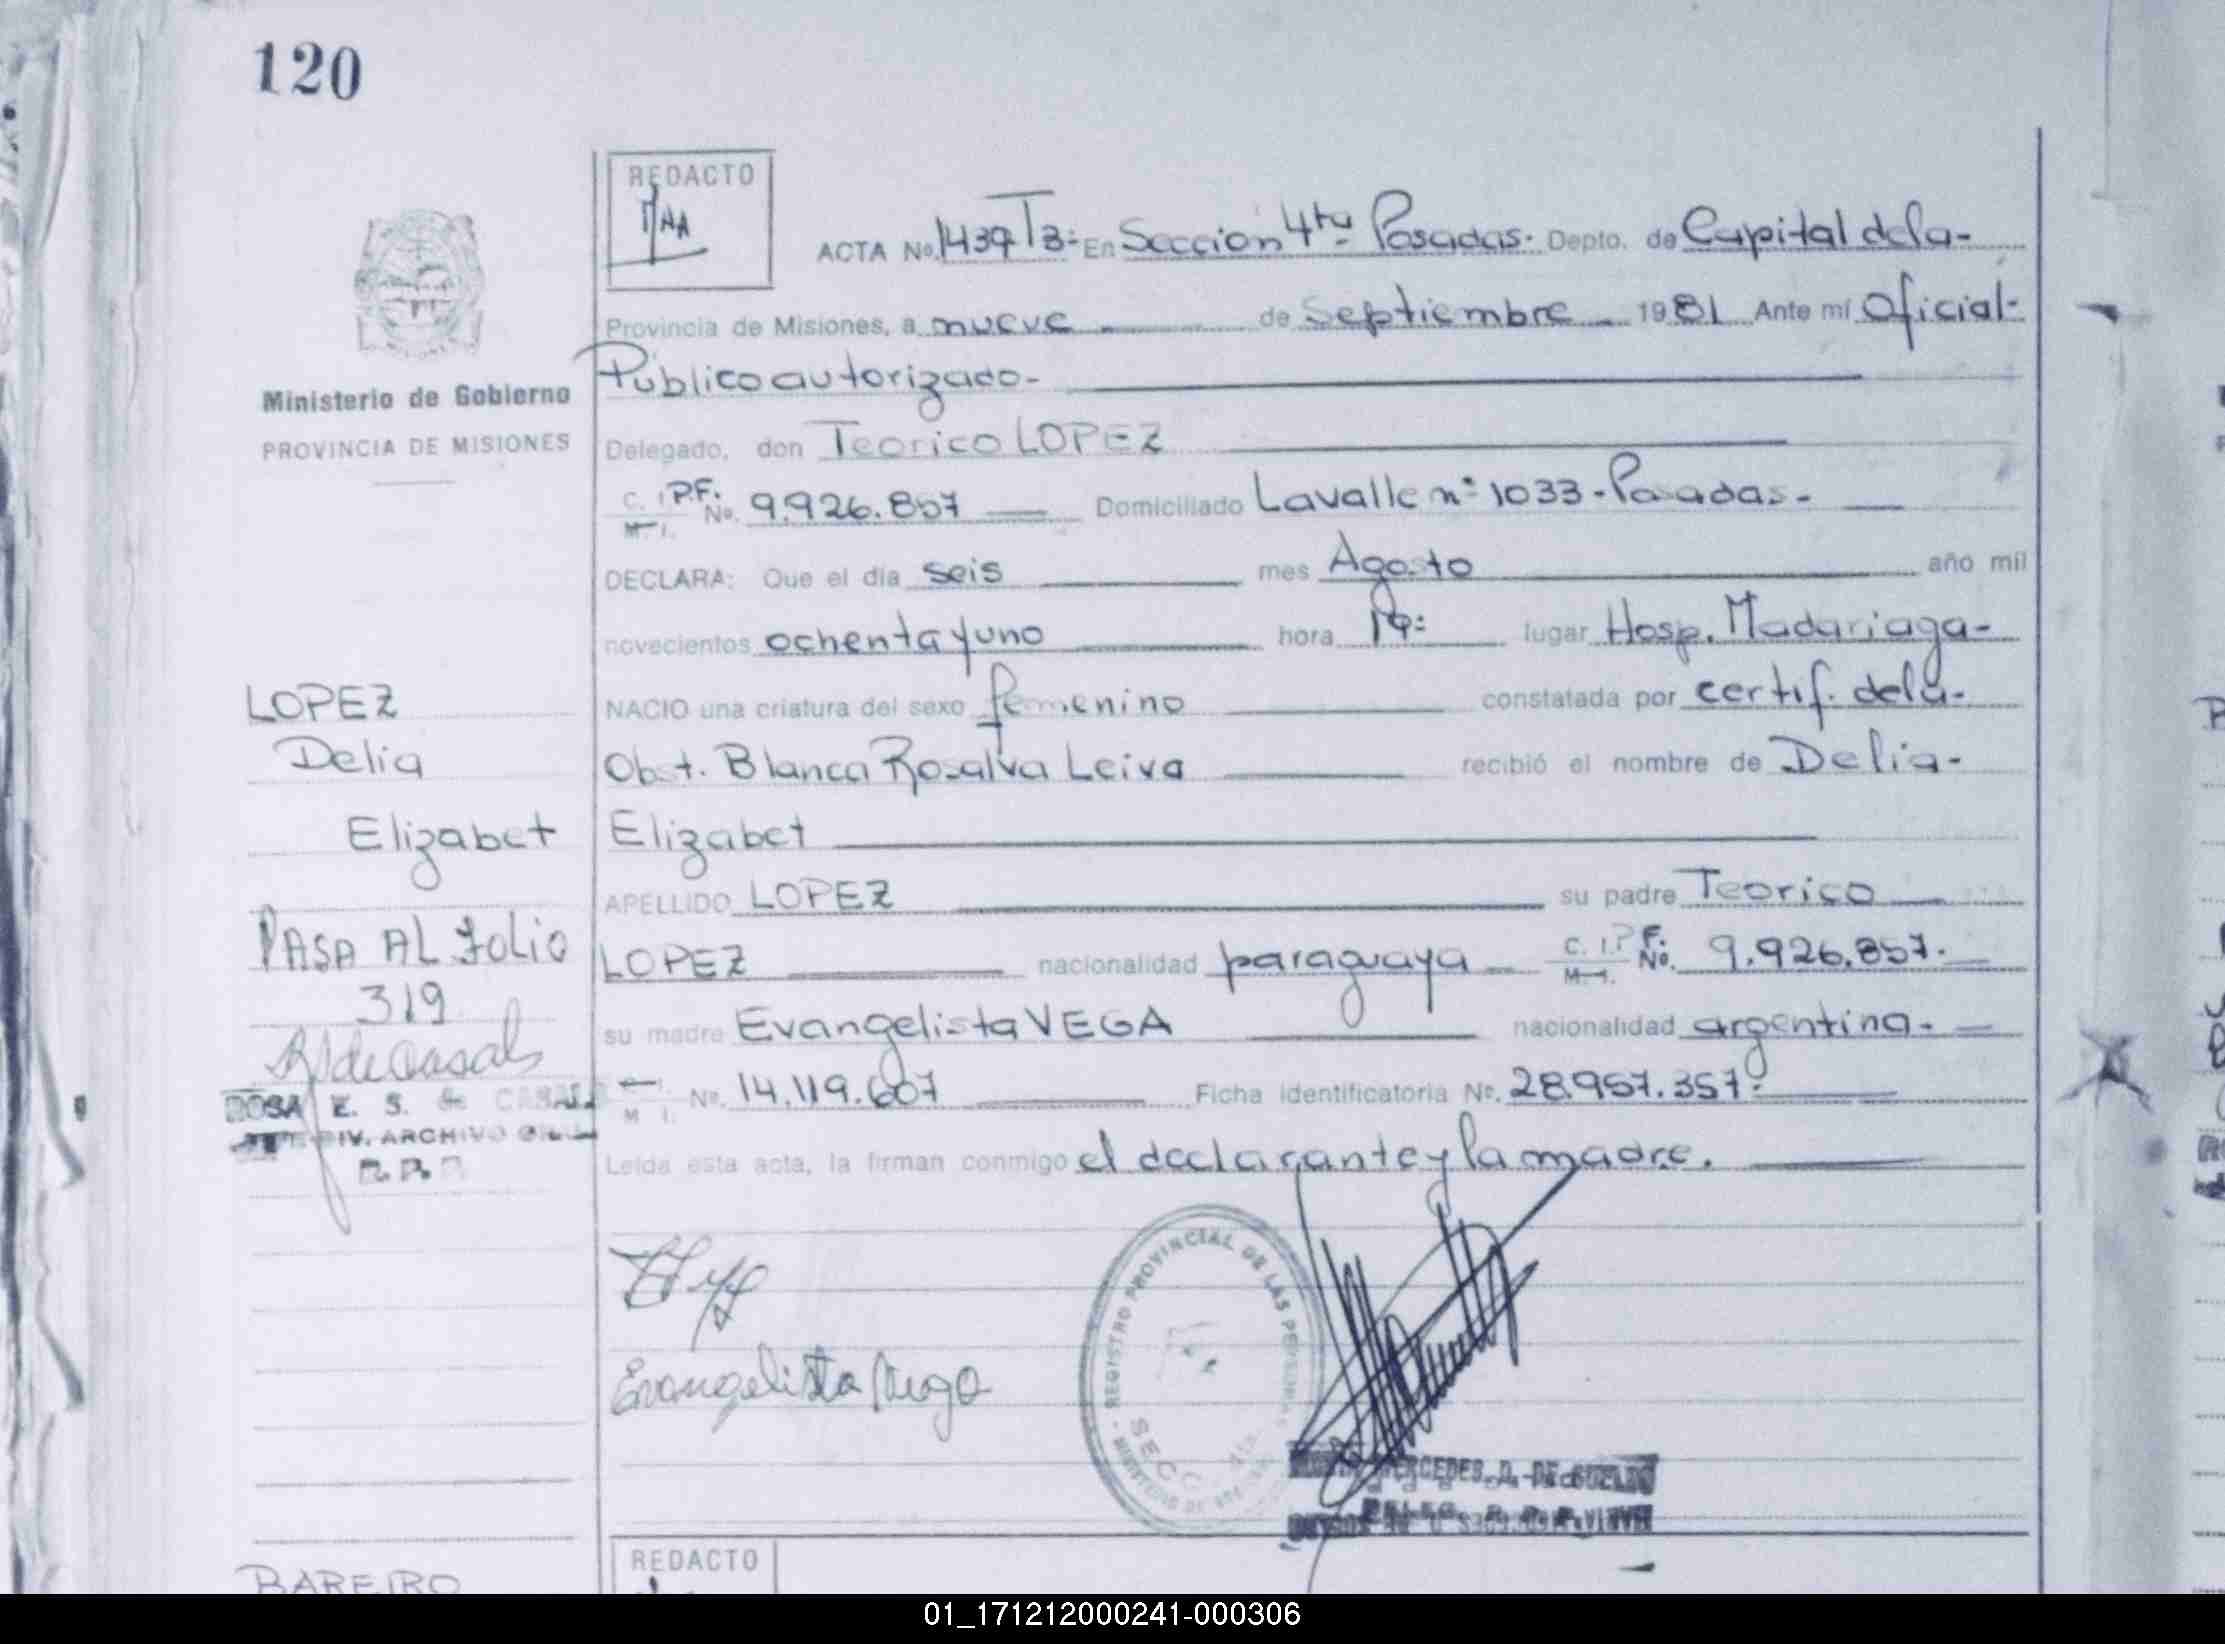 120
REDACTO
ACTA No. 1439 T3 = En Sección 4ta Posadas. Depto. de Capital de la-
Provincia de Misiones, a nueve de Septiembre 1981 Ante mí Oficial-
Público autorizado-
Delegado, don Teorico LOPEZ
C. I. P.F. M. I. No. 9.926.857 Domiciliado Lavalle nº 1033 - Posadas -
DECLARA: Que el día seis mes Agosto año mil
novecientos ochenta y uno hora 19: lugar Hosp. Madariaga-
NACIO una criatura del sexo femenino constatada por certif. de la-
Obst. Blanca Rosalva Leiva recibió el nombre de Delia-
Elizabet
APELLIDO LOPEZ su padre Teorico
LOPEZ nacionalidad paraguaya C. I. P.F. M. I. No. 9.926.857.
su madre Evangelista VEGA nacionalidad argentina.
M I. No. 14.119.607 Ficha identificatoria No. 28.957.357.
Leída esta acta, la firman conmigo el declarante y la madre.
Evangelista Vega
REGISTRO PROVINCIAL DE LAS PERSONAS
SECC. 4ta
MERCEDES A. DE
Ministerio de Gobierno
PROVINCIA DE MISIONES
LOPEZ
Delia
Elizabet
PASA AL folio
319
ROSA E. S. de CASALS
DIV. ARCHIVO GRAL
R. P. P.
BAREIRO
REDACTO
01_171212000241-000306